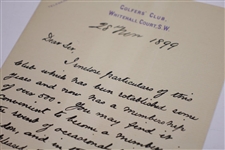 GOLFERS' CLUB,
WHITEHALL COURT, S.W.
25 Nov 1899
Dear Sir,
I enclose particulars of this
Club which has been established some
years and now has a membership
of over 500. You may find it
convenient to become a member
in event of occasional